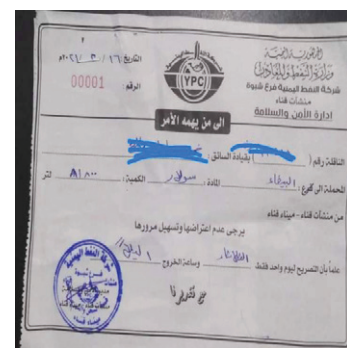 الجمهورية اليمنية
وزارة النفط والمعادن
شركة النفط اليمنية فرع شبوة
منشآت قناء
إدارة الأمن والسلامة
YPC
التاريخ: ١٦ / ٣ / ٢٠٢١م
الرقم: 00001
الى من يهمه الأمر
الناقلة رقم ( ) بقيادة السائق
المحملة الى فرع: البيضاء المادة: سولار الكمية: لتر
من منشآت قناء - ميناء قناء
يرجى عدم اعتراضها وتسهيل مرورها
علماً بأن التصريح ليوم واحد فقط. الثلاثاء وساعة الخروج
مع تقديرنا